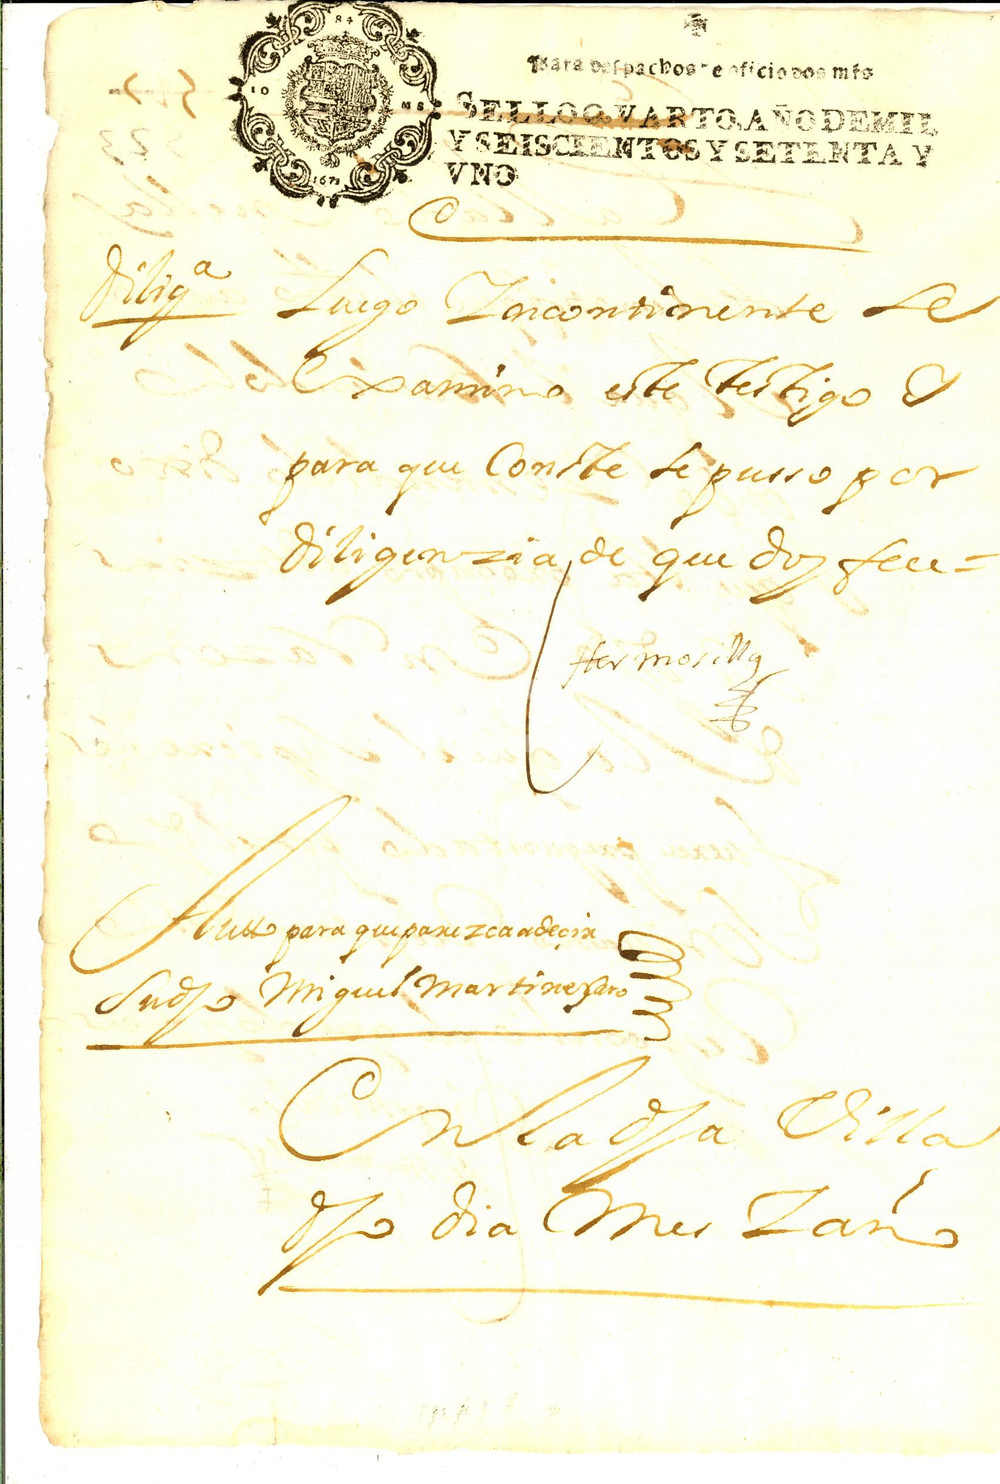 Para despachos de oficio dos mrs
SELLO QVARTO, AÑO DE MIL
Y SEISCIENTOS Y SETENTA Y
VNO
1671
diligª
Luego Yncontinente se
Examino este testigo Y
para que Conste se pusso por
diligenzia de que doy fee =
Hermosilla
Autto para que parezca a deçir
Su dho Miguel Martinez
En la dha Villa
dho dia Mes Y año